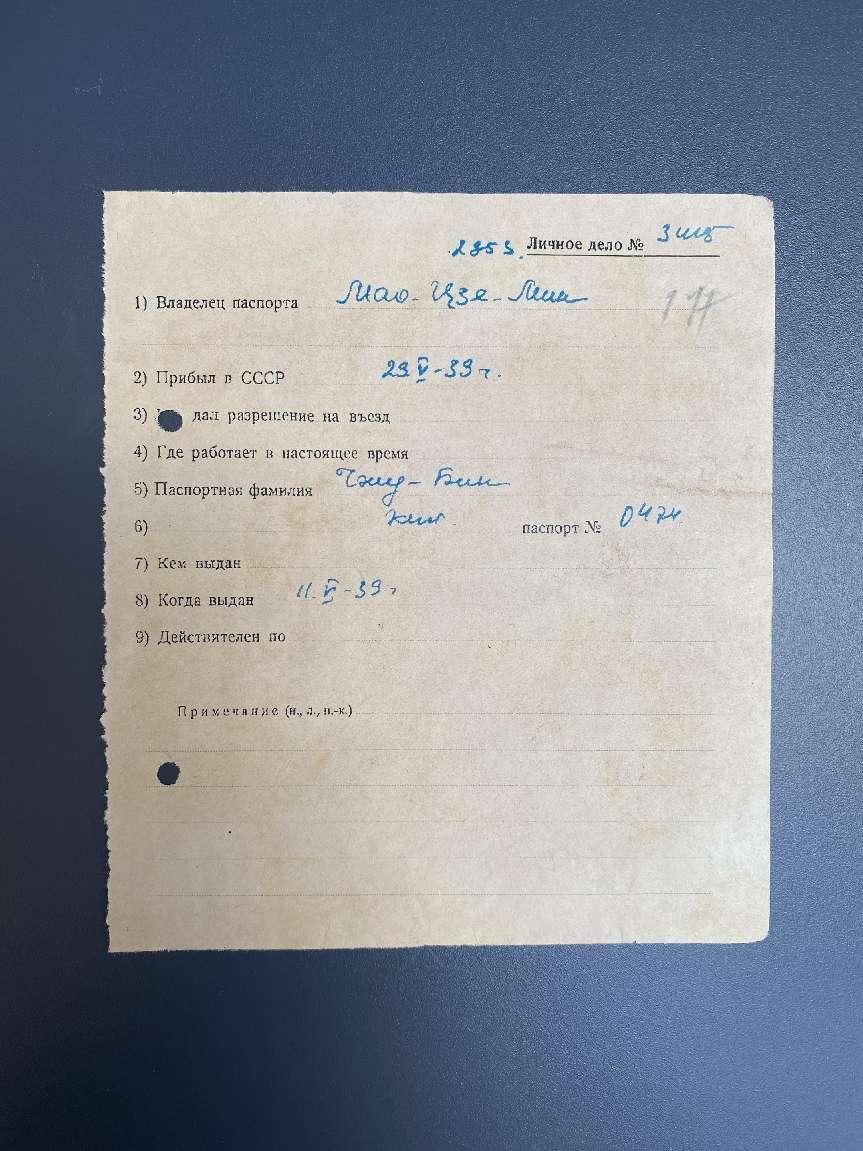 2853. Личное дело №
1) Владелец паспорта Мао-Цзе-Мин
177
2) Прибыл в СССР 29.V-39 г.
3) дал разрешение на въезд
4) Где работает в настоящее время
5) Паспортная фамилия
6) кит паспорт № 0474
7) Кем выдан
8) Когда выдан 11.V-39 г
9) Действителен по
Примечание (н., л., п.-к.)